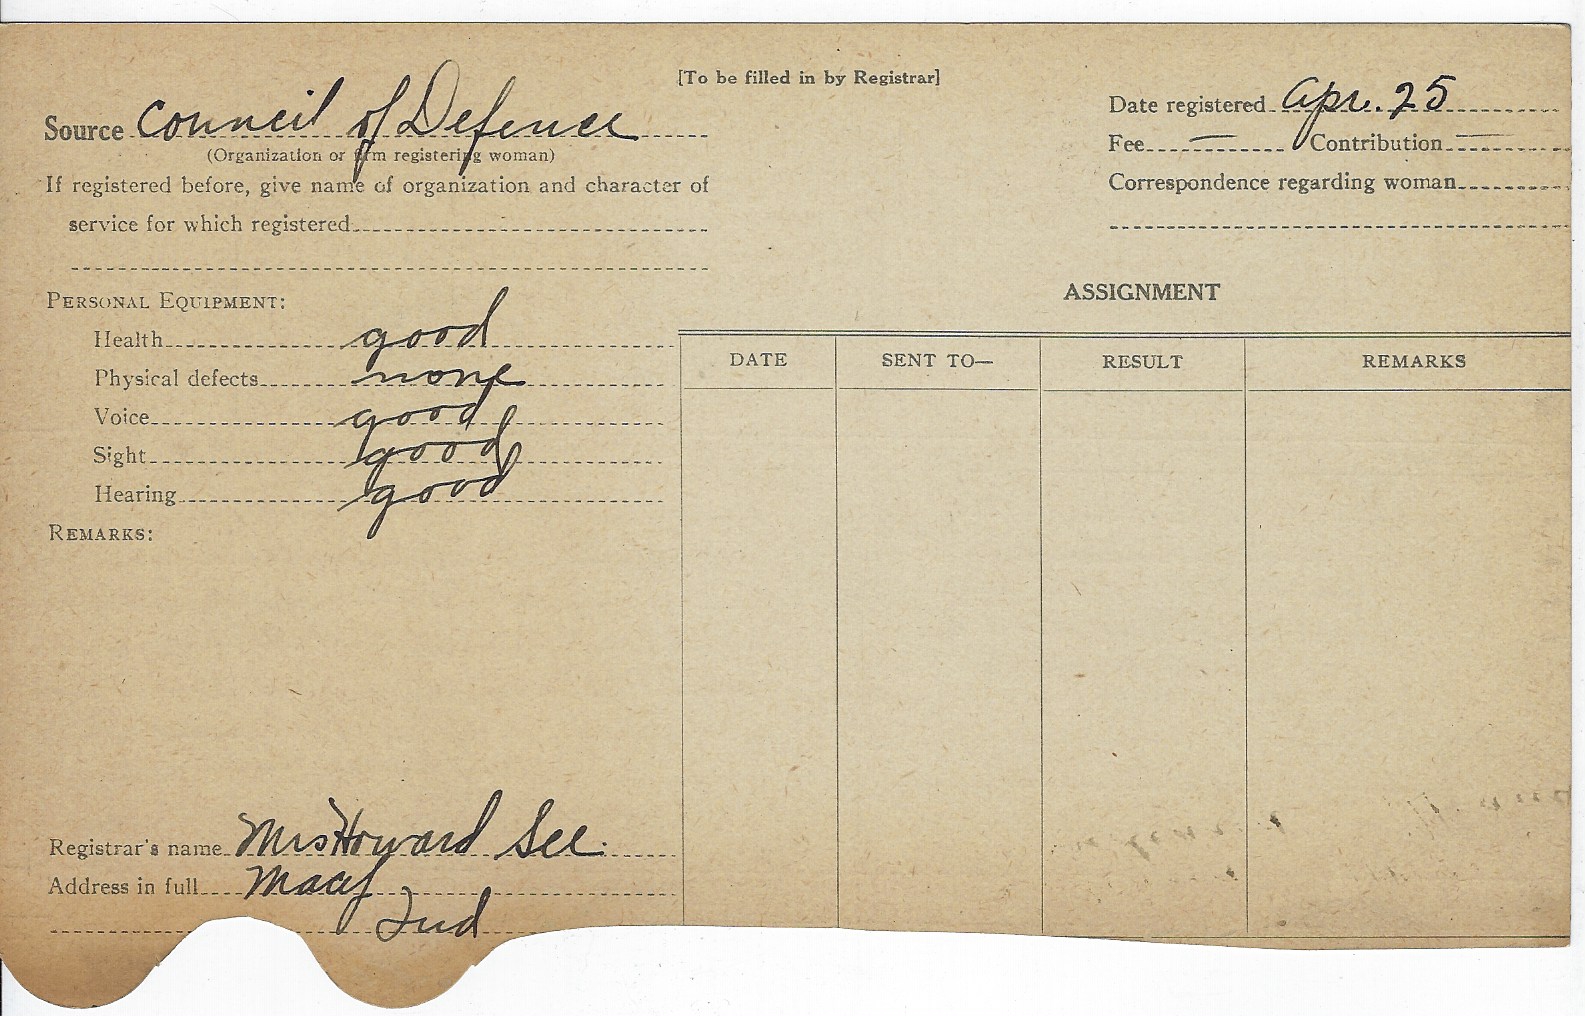 [To be filled in by Registrar]
Source Council of Defence
(Organization or firm registering woman)
If registered before, give name of organization and character of
service for which registered
Personal Equipment:
Health good
Physical defects none
Voice good
Sight good
Hearing good
Remarks:
Registrar's name Mrs Howard See
Address in full Macy
Ind
Date registered Apr. 25
Fee — Contribution —
Correspondence regarding woman
ASSIGNMENT
DATE SENT TO— RESULT REMARKS